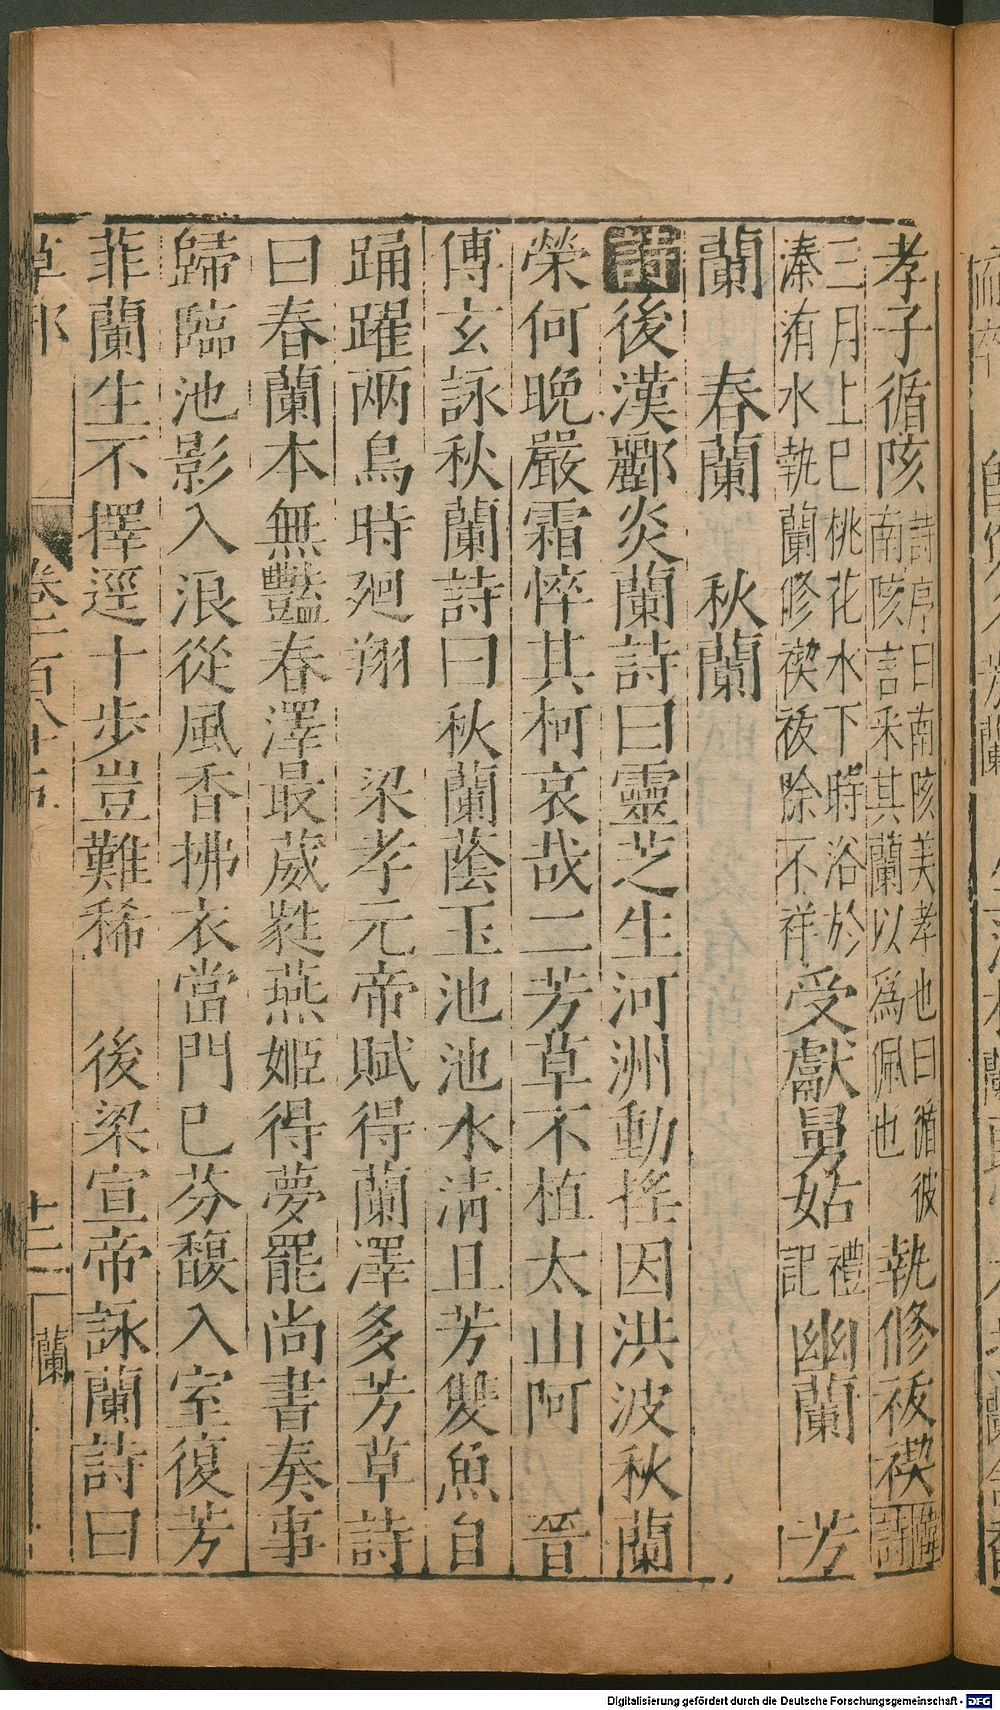 孝子循陔詩序曰南陔美孝也曰循彼南陔言采其蘭以爲佩也執修祓禊韓詩
三月上巳桃花水下時浴於溱洧水執蘭修禊祓除不祥受獻舅姑禮記幽蘭 芳
蘭 春蘭 秋蘭
詩後漢酈炎蘭詩曰靈芝生河洲動搖因洪波秋蘭
榮何晚嚴霜悴其柯哀哉二芳草不植太山阿 晉
傅玄詠秋蘭詩曰秋蘭蔭玉池池水清且芳雙魚自
踊躍兩鳥時廻翔 梁孝元帝賦得蘭澤多芳草詩
曰春蘭本無豔春澤最葳蕤燕姬得夢罷尚書奏事
歸臨池影入浪從風香拂衣當門巳芬馥入室復芳
菲蘭生不擇逕十步豈難稀 後梁宣帝詠蘭詩曰
草部 卷三百八十五 十二 蘭
Digitalisierung gefördert durch die Deutsche Forschungsgemeinschaft - DFG